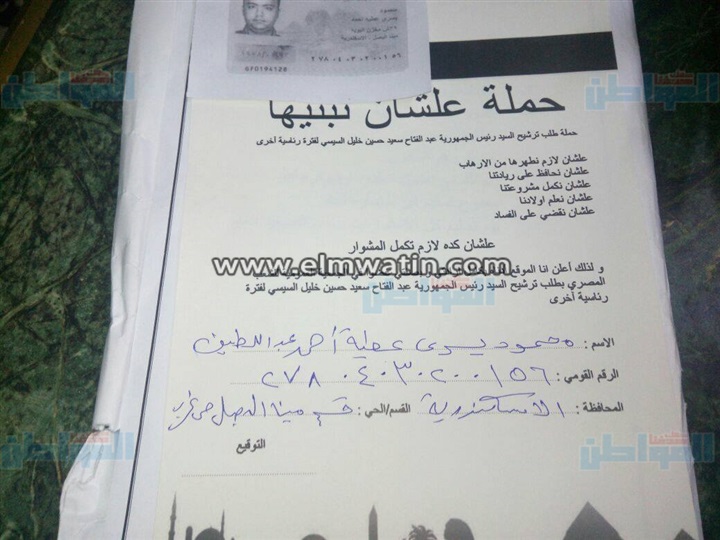 محمود
يسري عطيه احمد
٢٧٨٠٤٠٣٠٢٠٠١٥٦
GF0194128
حملة علشان نبنيها
حملة طلب ترشيح السيد رئيس الجمهورية عبد الفتاح سعيد حسين خليل السيسي لفترة رئاسية أخرى
علشان لازم نطهرها من الارهاب
علشان نحافظ على ريادتنا
علشان نكمل مشروعتنا
علشان نعلم اولادنا
علشان نقضي على الفساد
علشان كده لازم تكمل المشوار
و لذلك أعلن انا الموقع
www.elmwatin.com
المصري بطلب ترشيح السيد رئيس الجمهورية عبد الفتاح سعيد حسين خليل السيسي لفترة
رئاسية أخرى
الاسم: محمود يسرى عطية أحمد عبد اللطيف
الرقم القومي: ٢٧٨٠٤٠٣٠٢٠٠١٥٦
المحافظة: الاسكندرية القسم/الحي: قسم مينا البصل حى غرب
التوقيع
المواطن